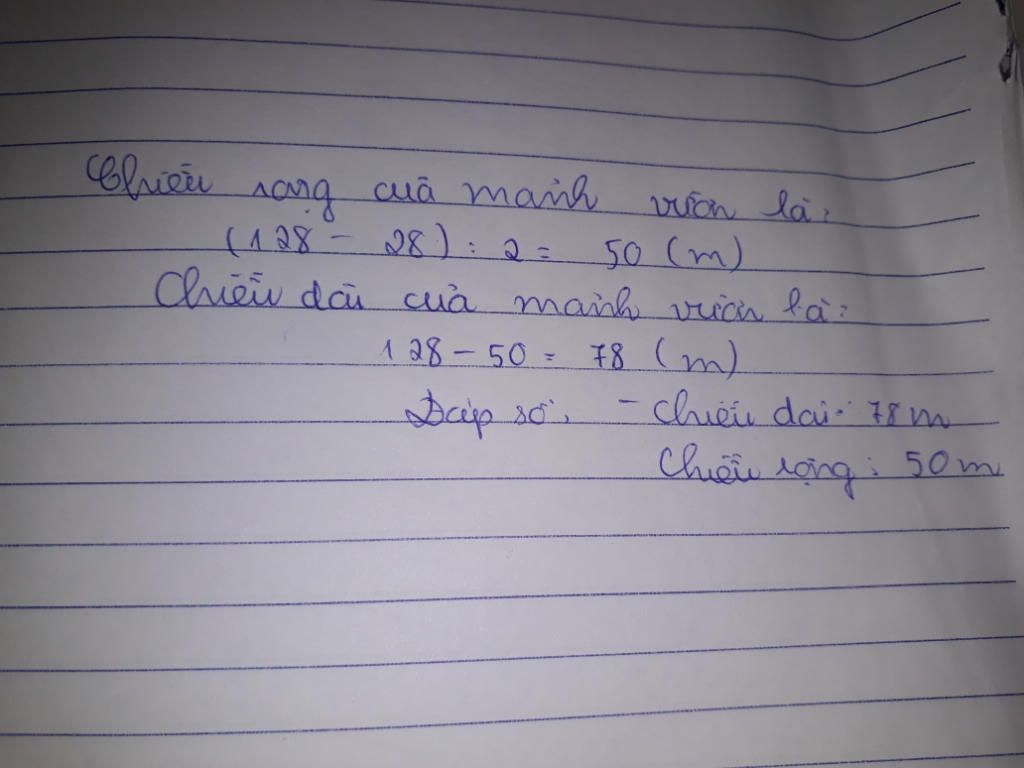 Chiều rộng cuả mảnh vườn là:
(128 - 28) : 2 = 50 (m)
Chiều dài của mảnh vườn là:
128 - 50 = 78 (m)
Đáp số: - Chiều dài: 78 m
Chiều rộng: 50 m